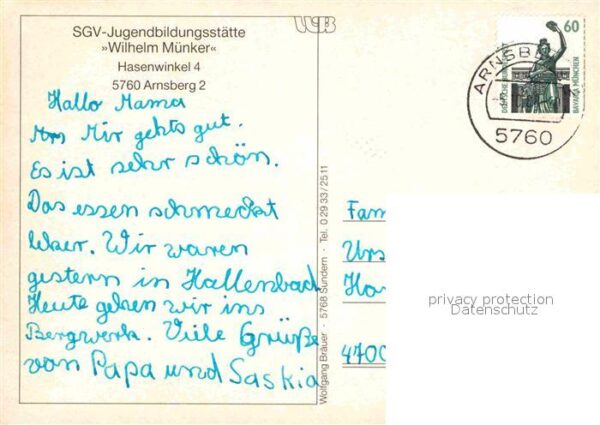 SGV-Jugendbildungsstätte
»Wilhelm Münker«
Hasenwinkel 4
5760 Arnsberg 2
Hallo Mama
Mir gehts gut.
Es ist sehr schön.
Das essen schmeckt
leker. Wir waren
gestern in Hallenbad
Heute gehen wir ins
Bergwerk. Viele Grüße
von Papa und Saskia
Wolfgang Bräuer - 5768 Sundern - Tel. 0 29 33 / 25 11
60
BAVARIA MÜNCHEN
ARNSBE
5760
Fam
Urs
Ha
4700
privacy protection
Datenschutz